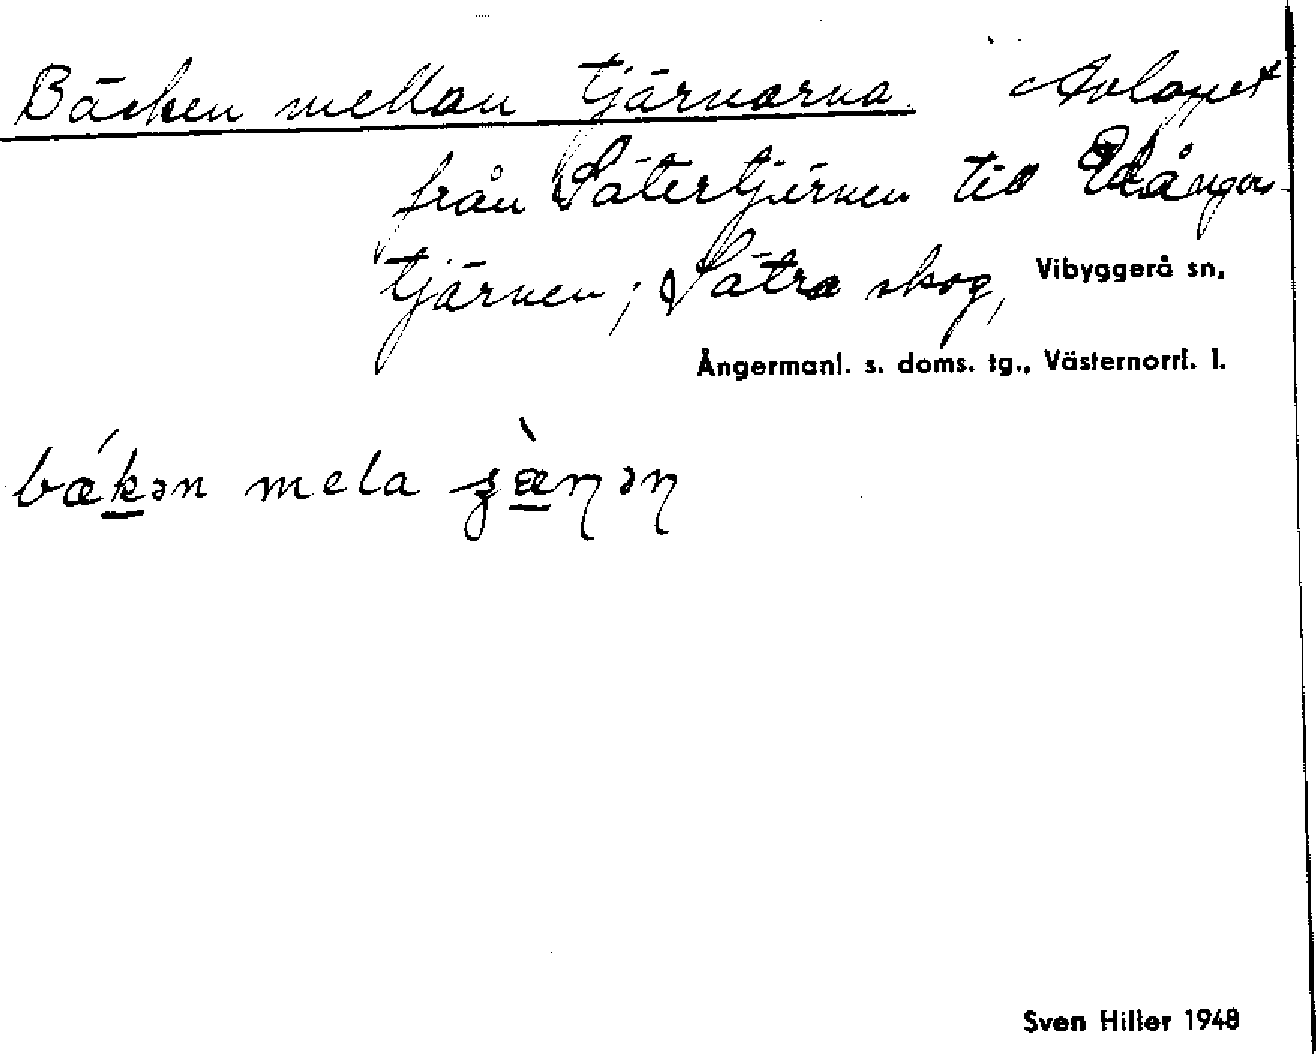 Bäcken mellan tjärnarna. Avloppet
från Sätertjärnen till
tjärnen; Sätra skog, Vibyggerå sn,
Ångermanl. s. doms. tg., Västernorrl. l.
bǽkən mela
Sven Hiller 1948